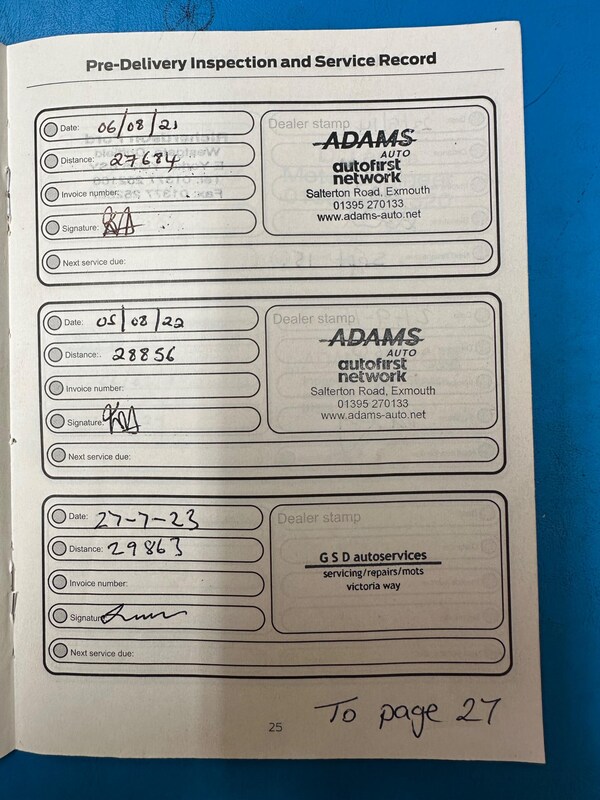 Pre-Delivery Inspection and Service Record
Date: 06/08/21
Distance: 27684
Invoice number:
Signature:
Next service due:
Dealer stamp
ADAMS
AUTO
autofirst
network
Salterton Road, Exmouth
01395 270133
www.adams-auto.net
Date: 05/08/22
Distance:. 28856
Invoice number:
Signature:
Next service due:
Dealer stamp
ADAMS
AUTO
autofirst
network
Salterton Road, Exmouth
01395 270133
www.adams-auto.net
Date: 27-7-23
Distance: 29863
Invoice number:
Signature
Next service due:
Dealer stamp
G S D autoservices
servicing/repairs/mots
victoria way
To page 27
25